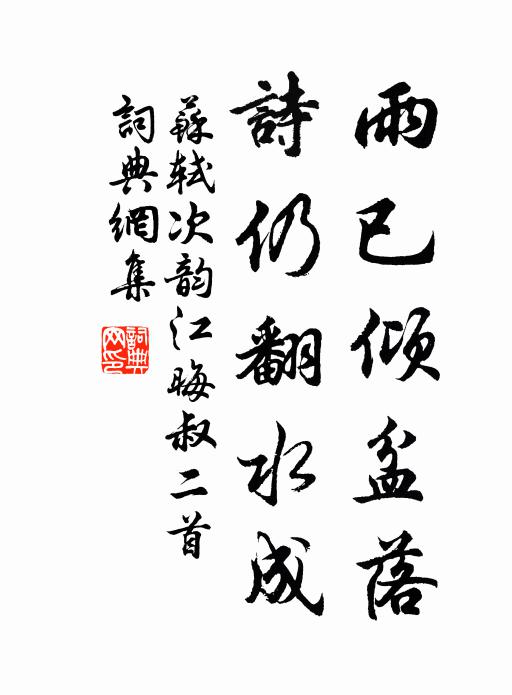 雨已傾盆落
詩仍翻水成
蘇軾次韵江晦叔二首
詞典網集
詞典網印